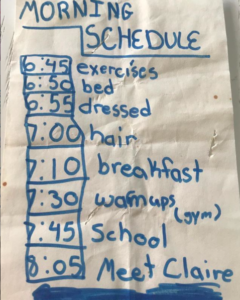 MORNING
SCHEDULE
6:45 exercises
6:50 bed
6:55 dressed
7:00 hair
7:10 breakfast
7:30 warmups
(gym)
7:45 School
8:05 Meet Claire